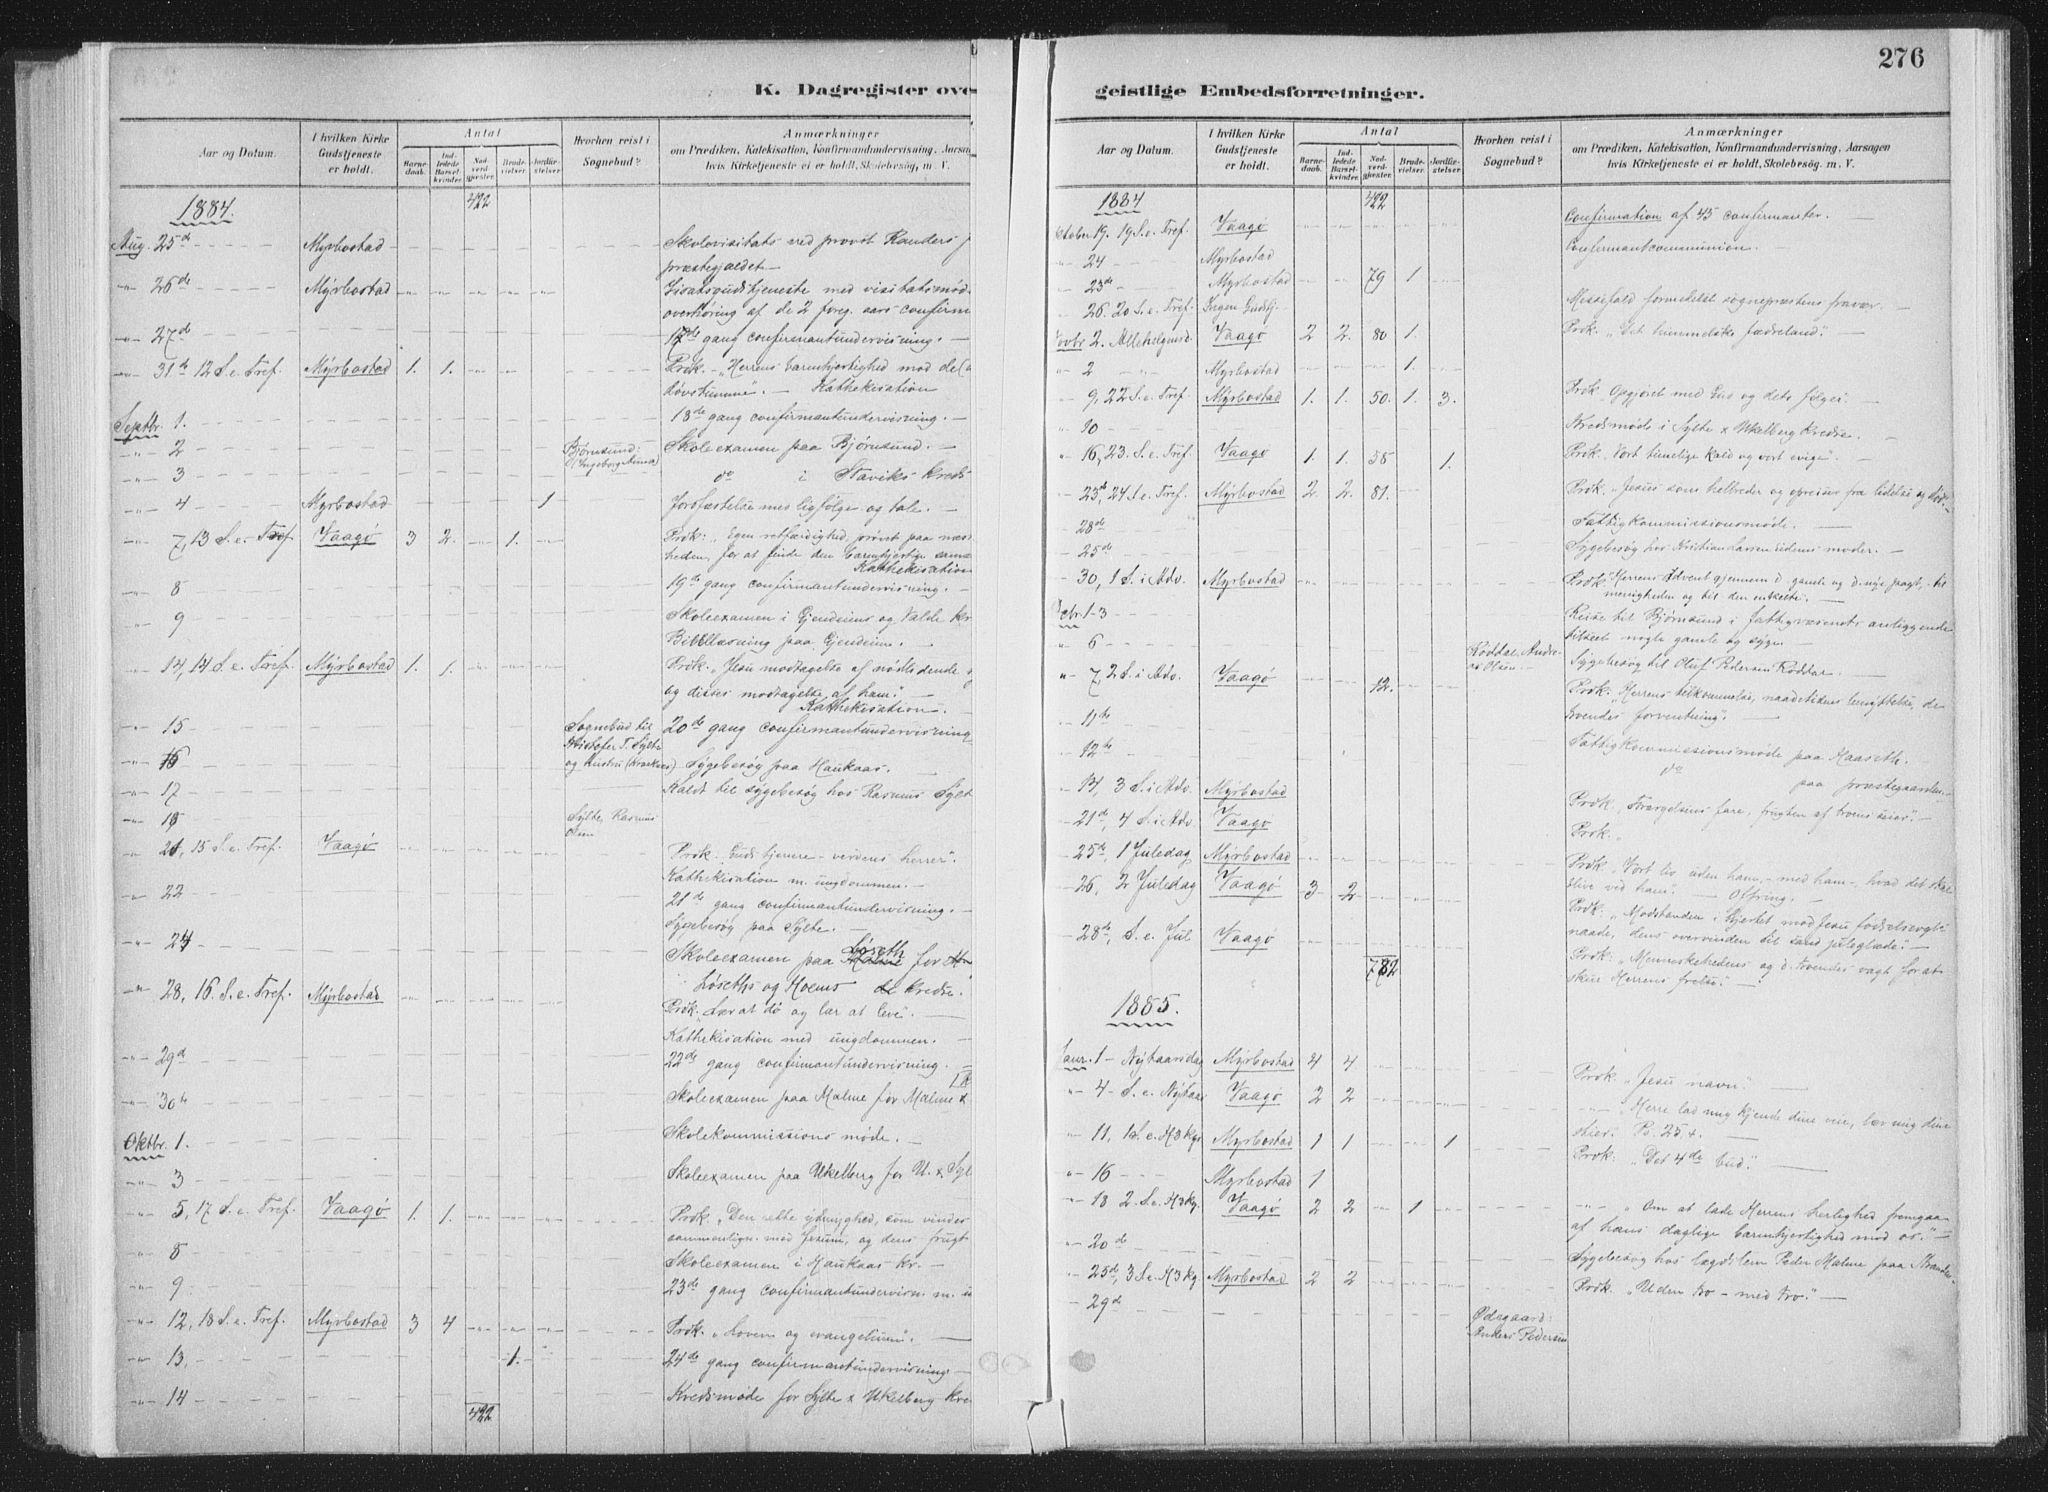 276
K. Dagregister ove
Aar og Datum.
I hvilken Kirke Gudstjeneste er holdt.
Antal
Barne-daab.
Ind-ledede Barsel-kvinder.
Nad-verd-gjester.
Brude-vielser.
Jordfæ-stelser
Hvorhen reist i Sognebud?
Anmærkninger
om Prædiken, Katekisation, Konfirmandundervisning. Aarsag
hvis Kirketjeneste ei er holdt, Skolebesøg, m V.
1884. 422
Aug. 25de Myrbostad Skolevisitats ved provst Kanders
præstegjældet
-"- 26de Myrbostad med visitatsmød
overhøring af de 2 foreg. aars confirm
-"- 27de 17de gang confirmantundervisning.
-"- 31te 12 S. e. Tref. Myrbostad 1. 1. Præk. "Herrens barmhjertighed mod de
døvstumme". Kathekisation
Septbr. 1. 18de gang confirmantundervisning.
-"- 2 Bjørnsund: Skoleexamen paa Bjørnsund.
-"- 3 do i Staviks kreds
-"- 4 Myrbostad 1 Jordfæstelse med ligfølge og tale.
-"- 7, 13 S. e. Tref. Vaagø 3 2. 1. Præk: "Egen retfærdighed prøvet paa næs
heden, for at finde den barmhjertige sama
Kathekisation
-"- 8 19de gang confirmantundervisning.
-"- 9 Skoleexamen i Gjendems og Valde kr
Bibellæsning paa Gjendem.
-"- 14, 14 S. e. Tref. Myrbostad 1. 1. Præk: "Jesu modtagelse af nødlidende
og disses modtagelse af ham".
Kathekisation.
-"- 15 Sognebud til 20de gang confirmantundervisning
-"- 16 Sygebesøg paa Haukaas.
-"- 17 Kaldt til sygebesøg hos Rasmus Sylt
-"- 18 Sylte, Rasmus
-"- 21, 15 S. e. Tref. Vaagø Præk. "Guds tjenere - verdens herrer".
Kathekisation m. ungdommen.
-"- 22 21de gang confirmantundervisning.
Sygebesøg paa Sylte.
-"- 24 Skoleexamen paa Løseth for
Løseths og Hoems kredse.
-"- 28, 16 S. e. Tref. Myrbostad Præk. "Lær at dø og lær at leve".
Kathekisation med ungdommen.
-"- 29d 22de gang confirmantundervisning.
-"- 30te Skoleexamen paa Malme for Malme &
Oktbr. 1. Skolekommissions møde.
-"- 3 Skoleexamen paa Ukelberg for U. & Syl
-"- 5, 17 S. e. Tref. Vaagø 1. 1. Præk. "Den rette ydmyghed, som vindes
sammenlign. med Jesum, og dens frugt
-"- 8 Skoleexamen i Haukaas kr.
-"- 9 23de gang confirmantundervisn. m.
-"- 12, 18 S. e. Tref. Myrbostad 3 4 Præk. "Loven og evangelium".
-"- 13, 1. 24de gang confirmantundervisning
-"- 14 Kredsmøde for Sylte & Ukelberg kre
422
geistlige Embedsforretninger.
Aar og Datum.
I hvilken Kirke Gudstjeneste er holdt.
Antal
Barne-daab.
Ind-ledede Barsel-kvinder.
Nad-verd-gjester.
Brude-vielser.
Jordfæ-stelser
Hvorhen reist i Sognebud?
Anmærkninger
om Prædiken, Katekisation, Konfirmandundervisning, Aarsagen
hvis Kirketjeneste ei er holdt, Skolebesøg. m. V.
1884 422
ctober 19. 19 S. e. Tref. Vaagø Confirmation af 45 confirmanter.
" 24 Myrbostad Confirmantcommunion.
" 25de Myrbostad 79 1.
" 26. 20 S. e. Tref. Ingen Gudstj. Messefald formedelst sognepræstens fravær.
Novbr 2. Allehelgensd. Vaagø 2 2. 80 1. Præk. "Det himmelske fædreland".
" 2 Myrbostad 1.
" 9, 22 S. e. Tref. Myrbostad 1. 1. 50. 1. 3. Præk. "Opgjøret med Gud og dets følger".
" 10 Kredsmøde i Sylte & Ukelberg Kredse.
" 16, 23. S. e. Tref. Vaagø 1. 1. 58 1. Præk. "Vort timelige kald og vort evige".
" 23de, 24 S. e. Tref. Myrbostad 2. 2. 81. Præk. "Jesus som helbreder og opreiser fra lidelse og død".
" 28de Fattigkommissionsmøde.
" 25de Sygebesøg hos Kristian Larsen Eidems moder.
" 30, 1 S. i Adv. Myrbostad Præk. "Herrens Advent gjennem d. gamle og d. nye pagt, til
menigheden og til den enkelte.
Debr. 1-3 Reise til Bjørnsund i fattigvæsenets anliggende
" 6 tilseet nogle gamle og syge.
Røddal, Andre-as Olsen. Sygebesøg til Oluf Pedersen Røddal.
" 7, 2 S. i Adv. Vaagø 12. Præk: "Herrens tilkommelse, naadetidens benyttelse, de
troendes forventning".
" 11te Fattigkommissionsmøde paa Haaseth.
" 12te do paa præstegaarden.
" 14, 3 S. i Adv. Myrbostad Præk. "Forargelsens fare, frugten af troens seier".
" 21de, 4 S. i Adv. Vaagø Præk. "
" 25de, 1 Juledag Myrbostad Præk. "Vort liv uden ham, - med ham -, hvad det skal
blive ved ham". Offring.
" 26, 2 Juledag Vaagø 3 2 Præk. "Modstanden i hjertet mod Jesu fødsels
naade, dens overvinden til sand juleglæde".
" 28de, S. e. Jul Vaagø Præk: "Menneskehedens og d. troendes vagt for at
skue Herrens frelse".
782
1885.
Janr. 1 - Nytaarsdag Myrbostad 4 4 Præk. "Jesu navn".
" 4 - S. e. Nytaar Vaagø 2 2 "Herre lad mig kjende dine veie, lær mig dine
stier. Ps. 25, 4.
" 11, 1 S. e. H3kgr Myrbostad 1 1 1 Præk: "Det 4de bud".
" 16 Myrbostad 1
" 18 2. S. e. H3kg. Vaagø 2 2 1 "Om at lade Herrens herlighed fremgaa
af hans daglige barmhjertighed mod os".
" 20de Sygebesøg hos lægdslem Peder Malme paa
" 25de, 3 S. e. H3kg. Myrbostad 2 2 Præk. "Uden tro - med tro".
" 29de Ødegaard:
Anders Pedersen